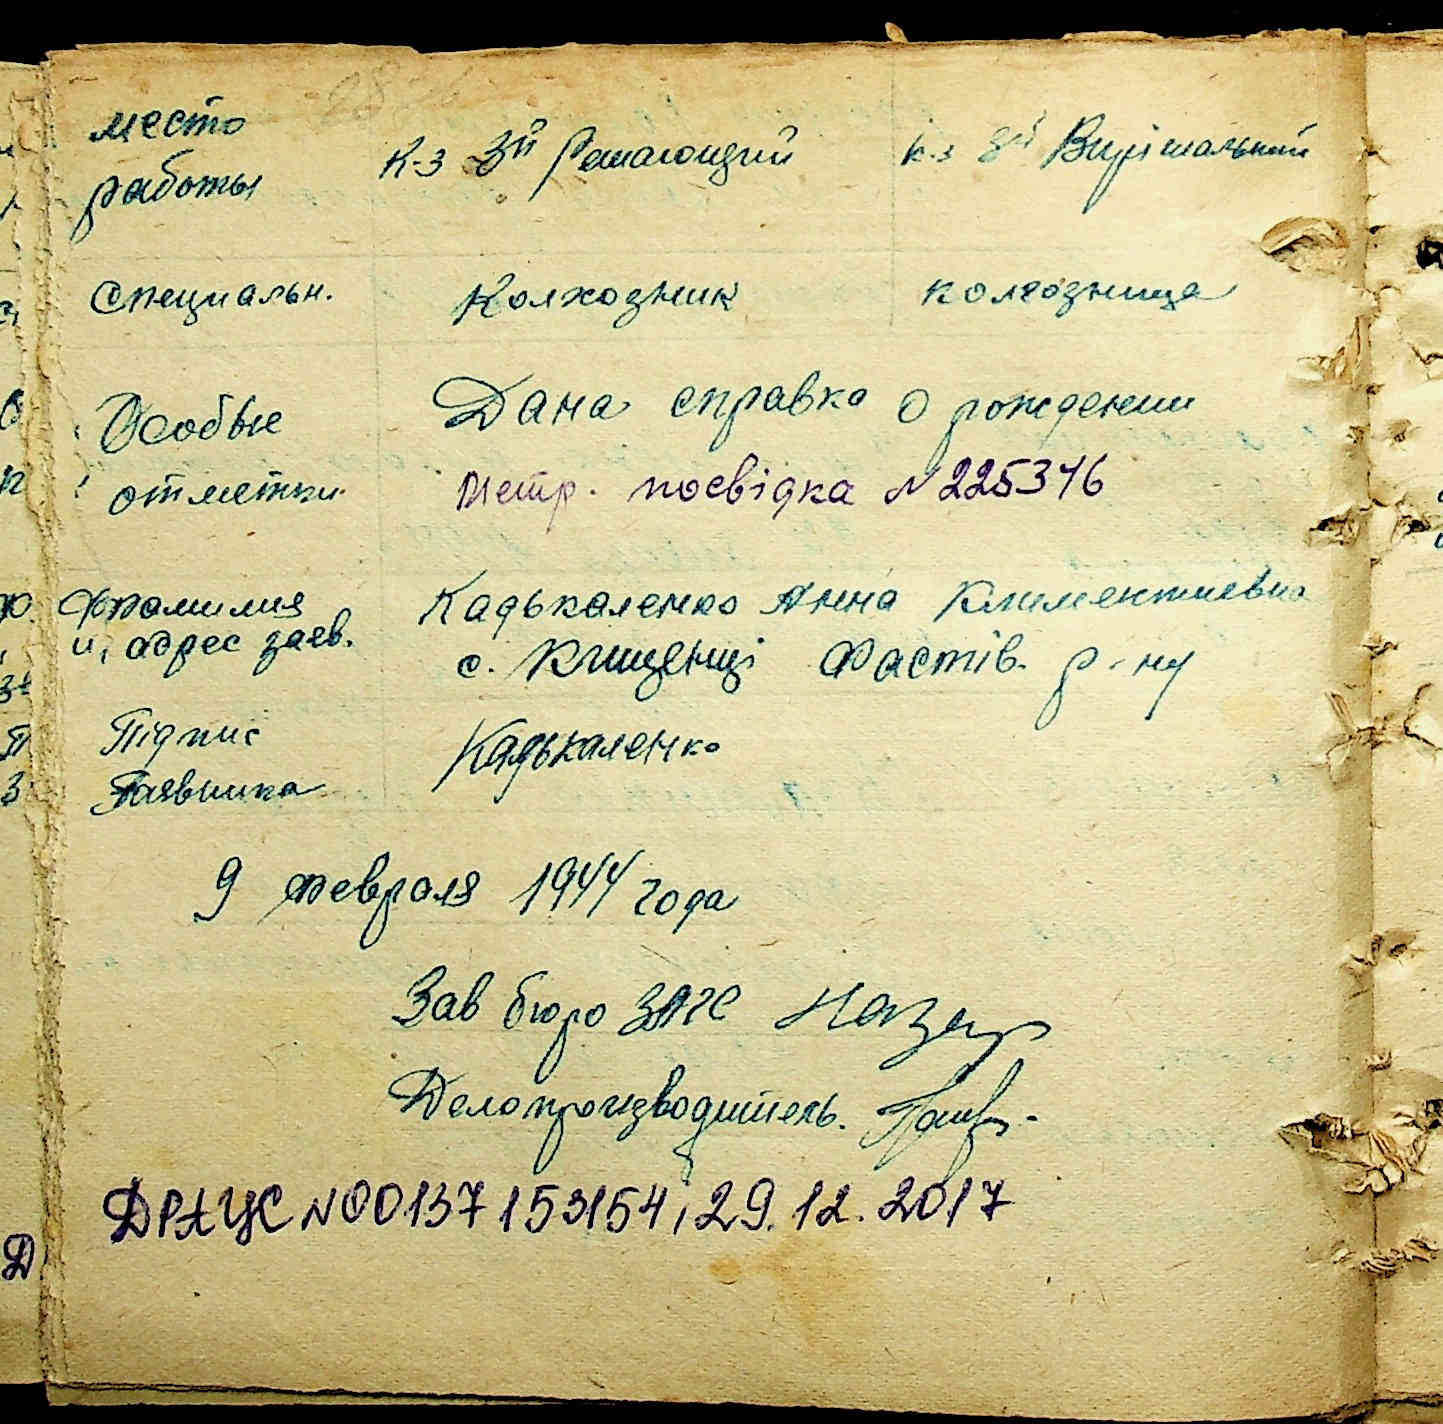 место
работы
К-з 3й Решающий
к-з 3й Вирішальний
Специальн.
Колхозник
колгозница
Особые
отметки.
Дана справка о рождении
Метр. посвідка №225376
Фамилия
и, адрес заяв.
Кадькаленко Анна Климентиевна
с. Кищенці Фастів. р-ну
Підпис
Заявника
Кадькаленко
9 февраля 1944 года
Зав бюро ЗАГС
Делопроизводитель.
ДРАЦС №00137153154, 29.12.2017